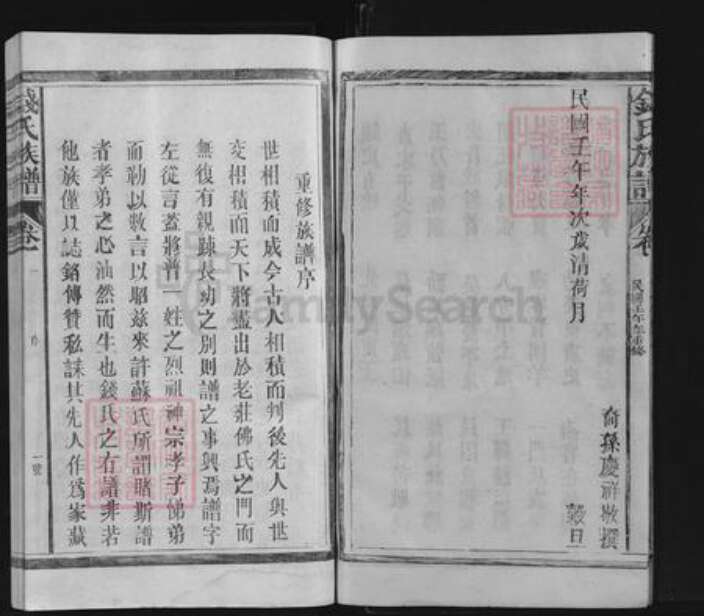 錢氏族譜
民國壬午年重修
裔孫慶祥敬撰
民國壬午年次歲清荷月
穀旦
重修族譜序
世相積而成今古人相積而判後先人與世
交相積而天下將盡出於老莊佛氏之門而
無復有親疎長幼之別則譜之事興焉譜字
左從言蓋將普一姓之烈祖神宗孝子悌弟
而勒以數言以昭玆來許蘇氏所謂睹斯譜
者孝弟之心油然而生也錢氏之有譜非若
他族僅以誌銘傳贊私誄其先人作爲家藏
錢氏族譜
卷一
一號
FamilySearch